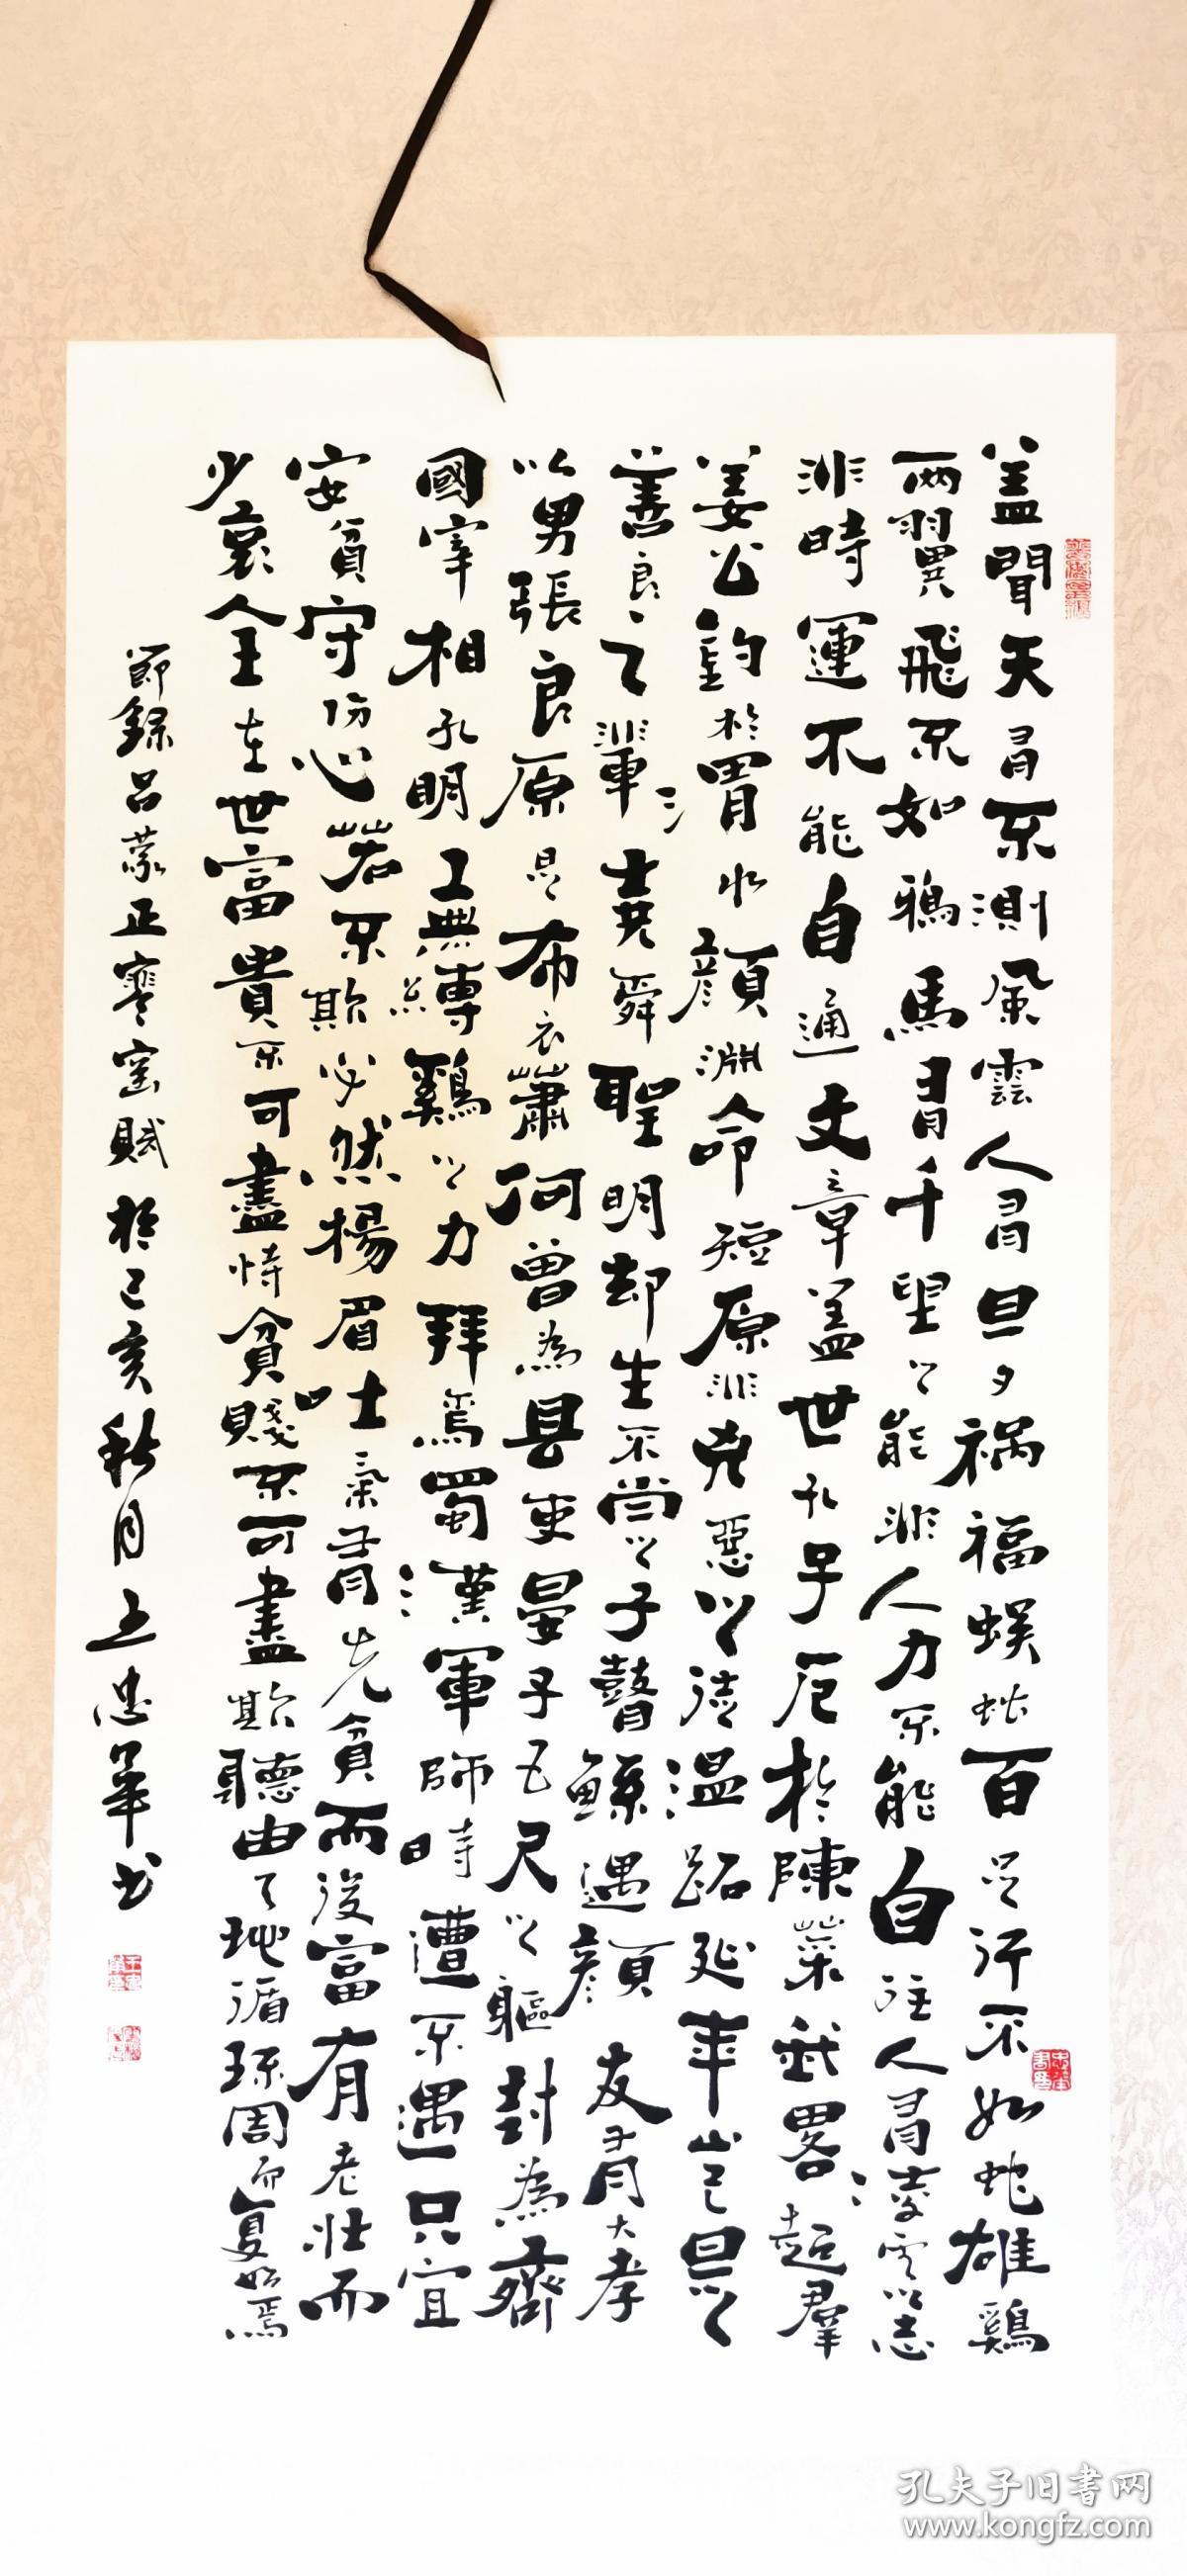 盖聞天有不測風雲人有旦夕祸福蜈蚣百足行不如蛇雄鷄
兩翼飛不如鴉馬有千里之能非人力不能自往人有凌雲之志
非時運不能自通文章盖世孔子厄於陳蔡武畧超羣
姜公釣於渭水顏淵命短原非兇惡之徒盜跖延年豈是
善良之輩堯舜聖明却生不肖之子瞽鯀遇顏友有大孝
以男張良原是布衣蕭何曾為县吏晏子五尺之軀封為齊
國宰相孔明無縛鷄之力拜為蜀漢軍師時遭不遇只宜
安貧守份心若不欺必然揚眉吐氣有先貧而後富有老壯而
少衰全在世富貴不可盡恃貧賤不可盡欺聽由天地循環周而復始焉
節録吕蒙正寒窑賦於己亥秋月王忠華书
孔夫子旧书网
www.kongfz.com